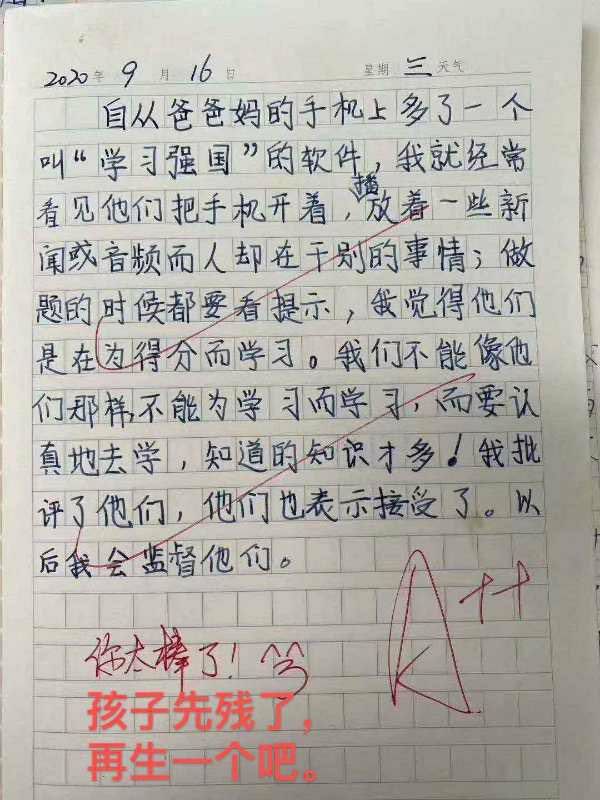 2020年 9月 16日 星期 三 天气
自从爸爸妈的手机上多了一个
叫“学习强国”的软件，我就经常
看见他们把手机开着，播放着一些新
闻或音频而人却在干别的事情；做
题的时候都要看提示，我觉得他们
是在为得分而学习。我们不能像他
们那样，不能为学习而学习，而要认
真地去学，知道的知识才多！我批
评了他们，他们也表示接受了。以
后我会监督他们。
A++
你太棒了！
孩子先残了，
再生一个吧。